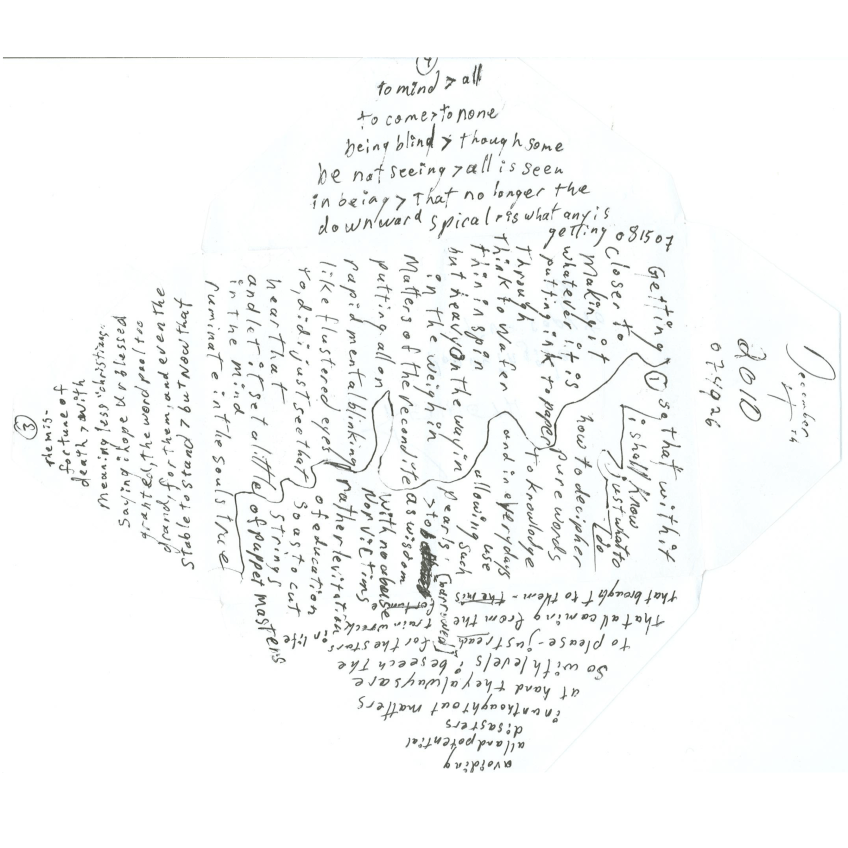 December
14th
2010
074926
Getting
Closer to
Making it
whatever it is
putting ink to paper
Through
think to wafer
thin in spin
but heavy on the way in
in the weigh in
Matters of the recondite as wisdom
putting all on
rapid mental blinking
like flustered eyes
to, did i just see that
hear that
and let it set a little
in the mind
ruminate in the soul's true
① so that with it
i shall know
just what to
do
how to decipher
pure words
to knowledge
and in everydays
allowing use
such
pearls
(harrowed)
> to be
with no abuse
Nor victims
rather levitation
of education
so as to cut
strings
of puppet masters
in life
avoiding
all and potential
disasters
in unthought out matters
at hand they always are
So with levels i beseech the
to please - just read - for the stars
that all coming from the train wreck
that brought to them - the mis
fortune
③
the mis-
fortune of
death > with
meaningless "christians"
Saying i hope Ur blessed
granted, the word pool too
drand, for them, and even the
Stable to stand > but now that
④
to mind > all
to come > to none
being blind > though some
be not seeing > all is seen
in being > That no longer the
downward spical r is what any is
getting 081507